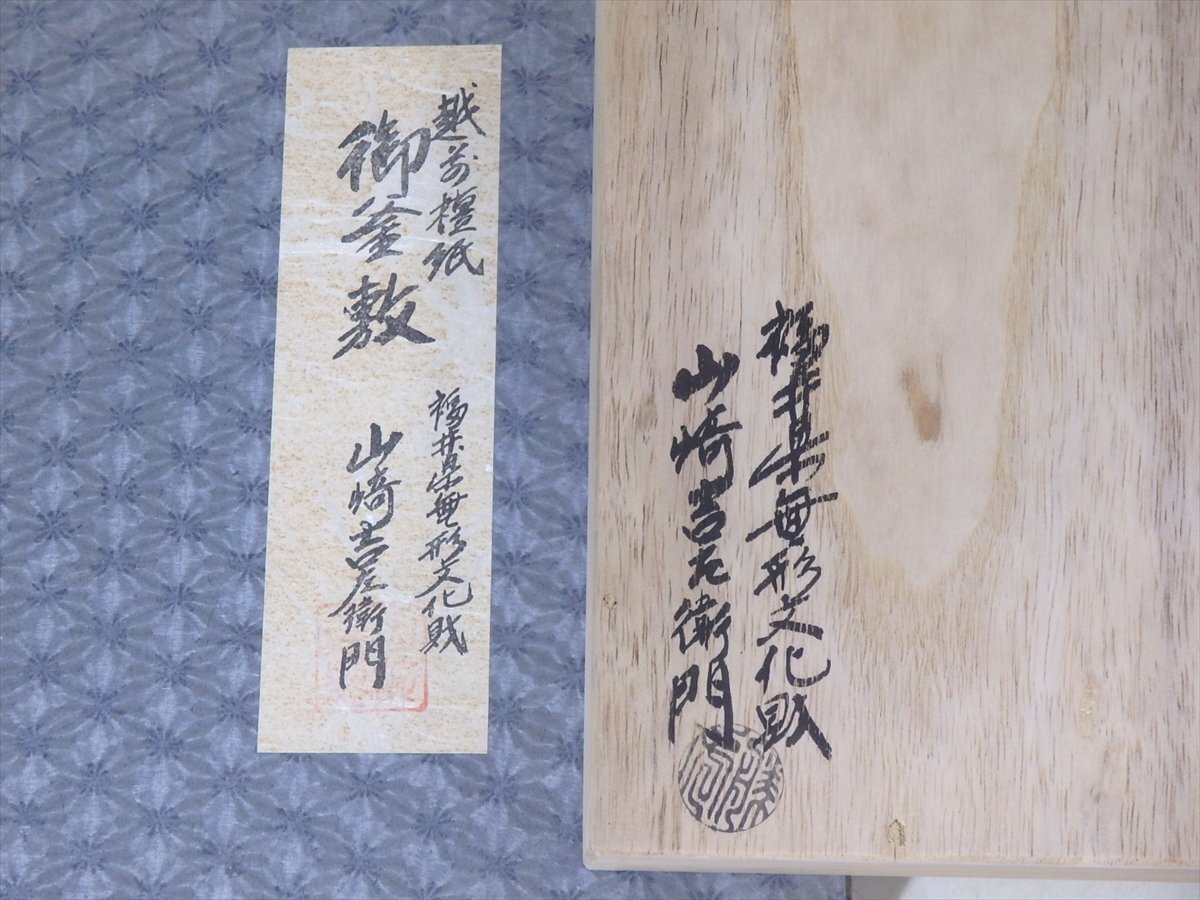 越前檀紙
御釜敷
福井県無形文化財
山崎吉左衛門
福井県無形文化財
山崎吉左衛門